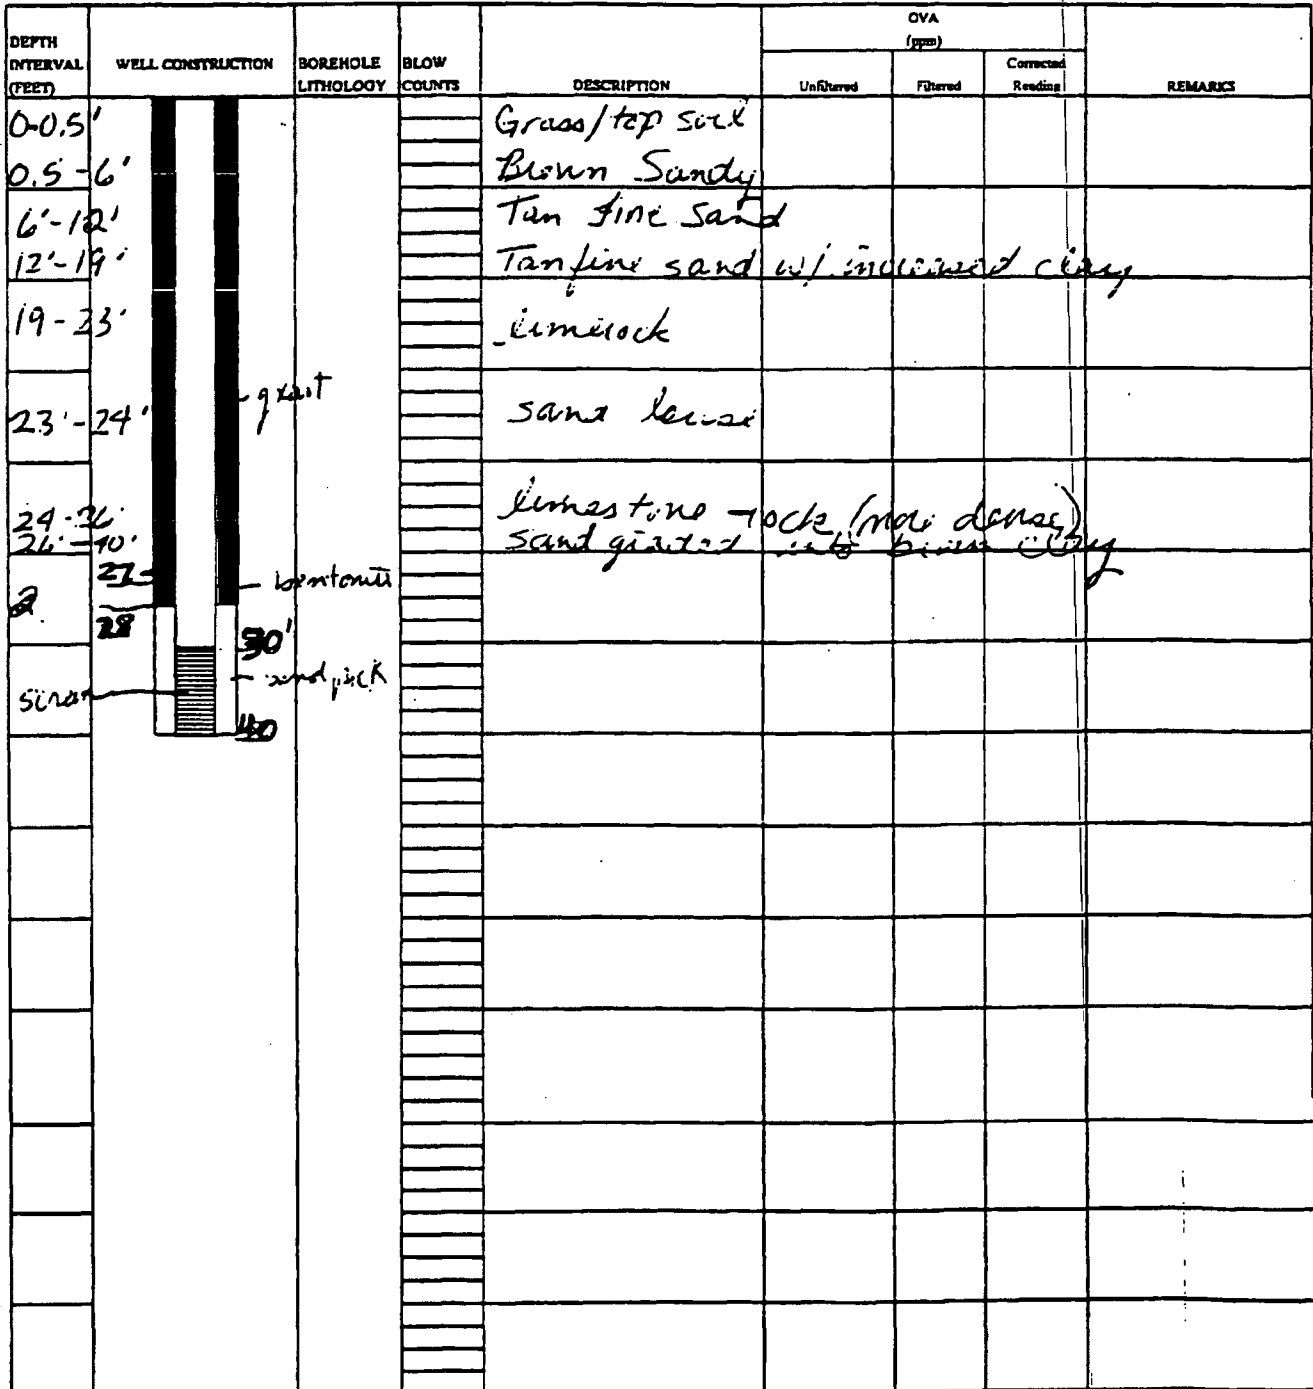 DEPTH INTERVAL (FEET)
WELL CONSTRUCTION
BOREHOLE LITHOLOGY
BLOW COUNTS
DESCRIPTION
OVA (ppm)
Unfiltered
Filtered
Corrected Reading
REMARKS
0-0.5' Grass/top soil
0.5-6' Brown Sandy
6'-12' Tan fine sand
12'-19' Tan fine sand w/ increased clay
19-23' limerock
grout
23'-24' sand lense
24-26' limestone rock (more dense)
26'-40' sand graded into brown clay
27
bentonite
2
28
30'
screen
sand pack
40